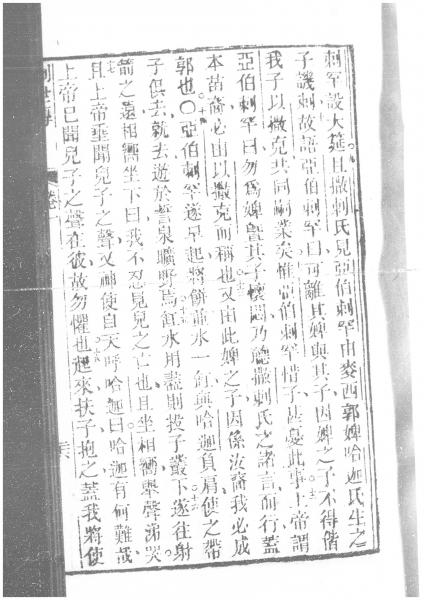 剌罕設大筵且撒剌氏見亞伯剌罕由麥西郭婢哈迦氏生之
子譏刺故語亞伯剌罕曰可離其婢與其子因婢之子不得偕
我子以撒克共同嗣業矣惟亞伯剌罕惜子甚憂此事上帝謂
亞伯剌罕曰勿為婢曁其子懷悶乃聽撒剌氏之諸言而行蓋
本苗裔必由以撒克而稱也又由此婢之子因係汝裔我必成
郭也○亞伯剌罕遂早起將餅並水一缸與哈迦負肩使之帶
子俱去就去遊於誓泉曠野焉缸水用盡則投子叢下遂往射
箭之遠相嚮坐下曰我不忍見兒之亡也且坐相嚮舉聲涕哭
且上帝垂聞兒子之聲又神使自天呼哈迦曰哈迦有何難哉
上帝已聞兒子之聲在彼故勿懼也起來扶子抱之蓋我將使
卷一